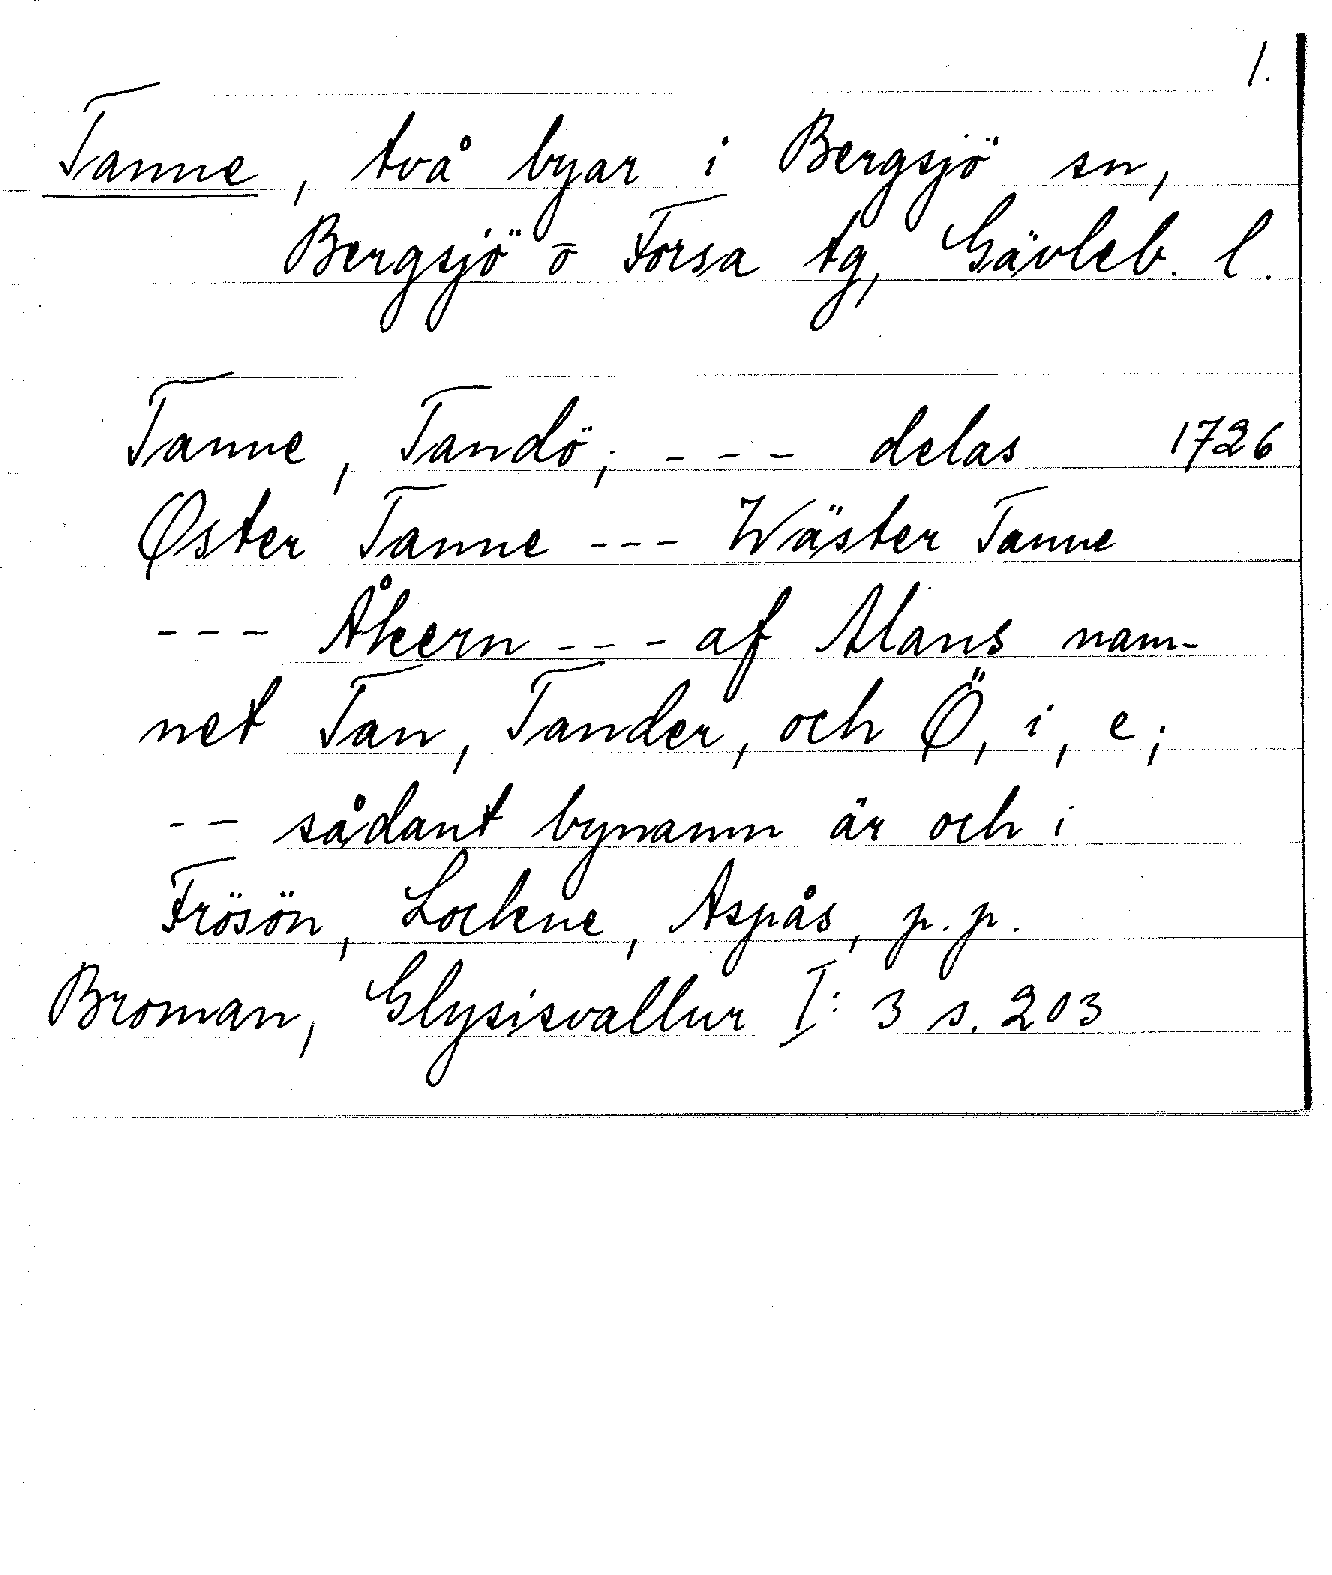 1.
Tanne, två byar i Bergsjö sn,
Bergsjö o Forsa tg, Gävleb. l.
Tanne, Tandö; --- delas 1726
Øster Tanne --- Wäster Tanne
--- Åkern --- af Mans nam-
net Tan, Tander, och Ö, i, e;
-- sådant bynamn är och i
Frösön, Lockne, Aspås, p. p.
Broman, Glysisvallur I: 3 s. 203